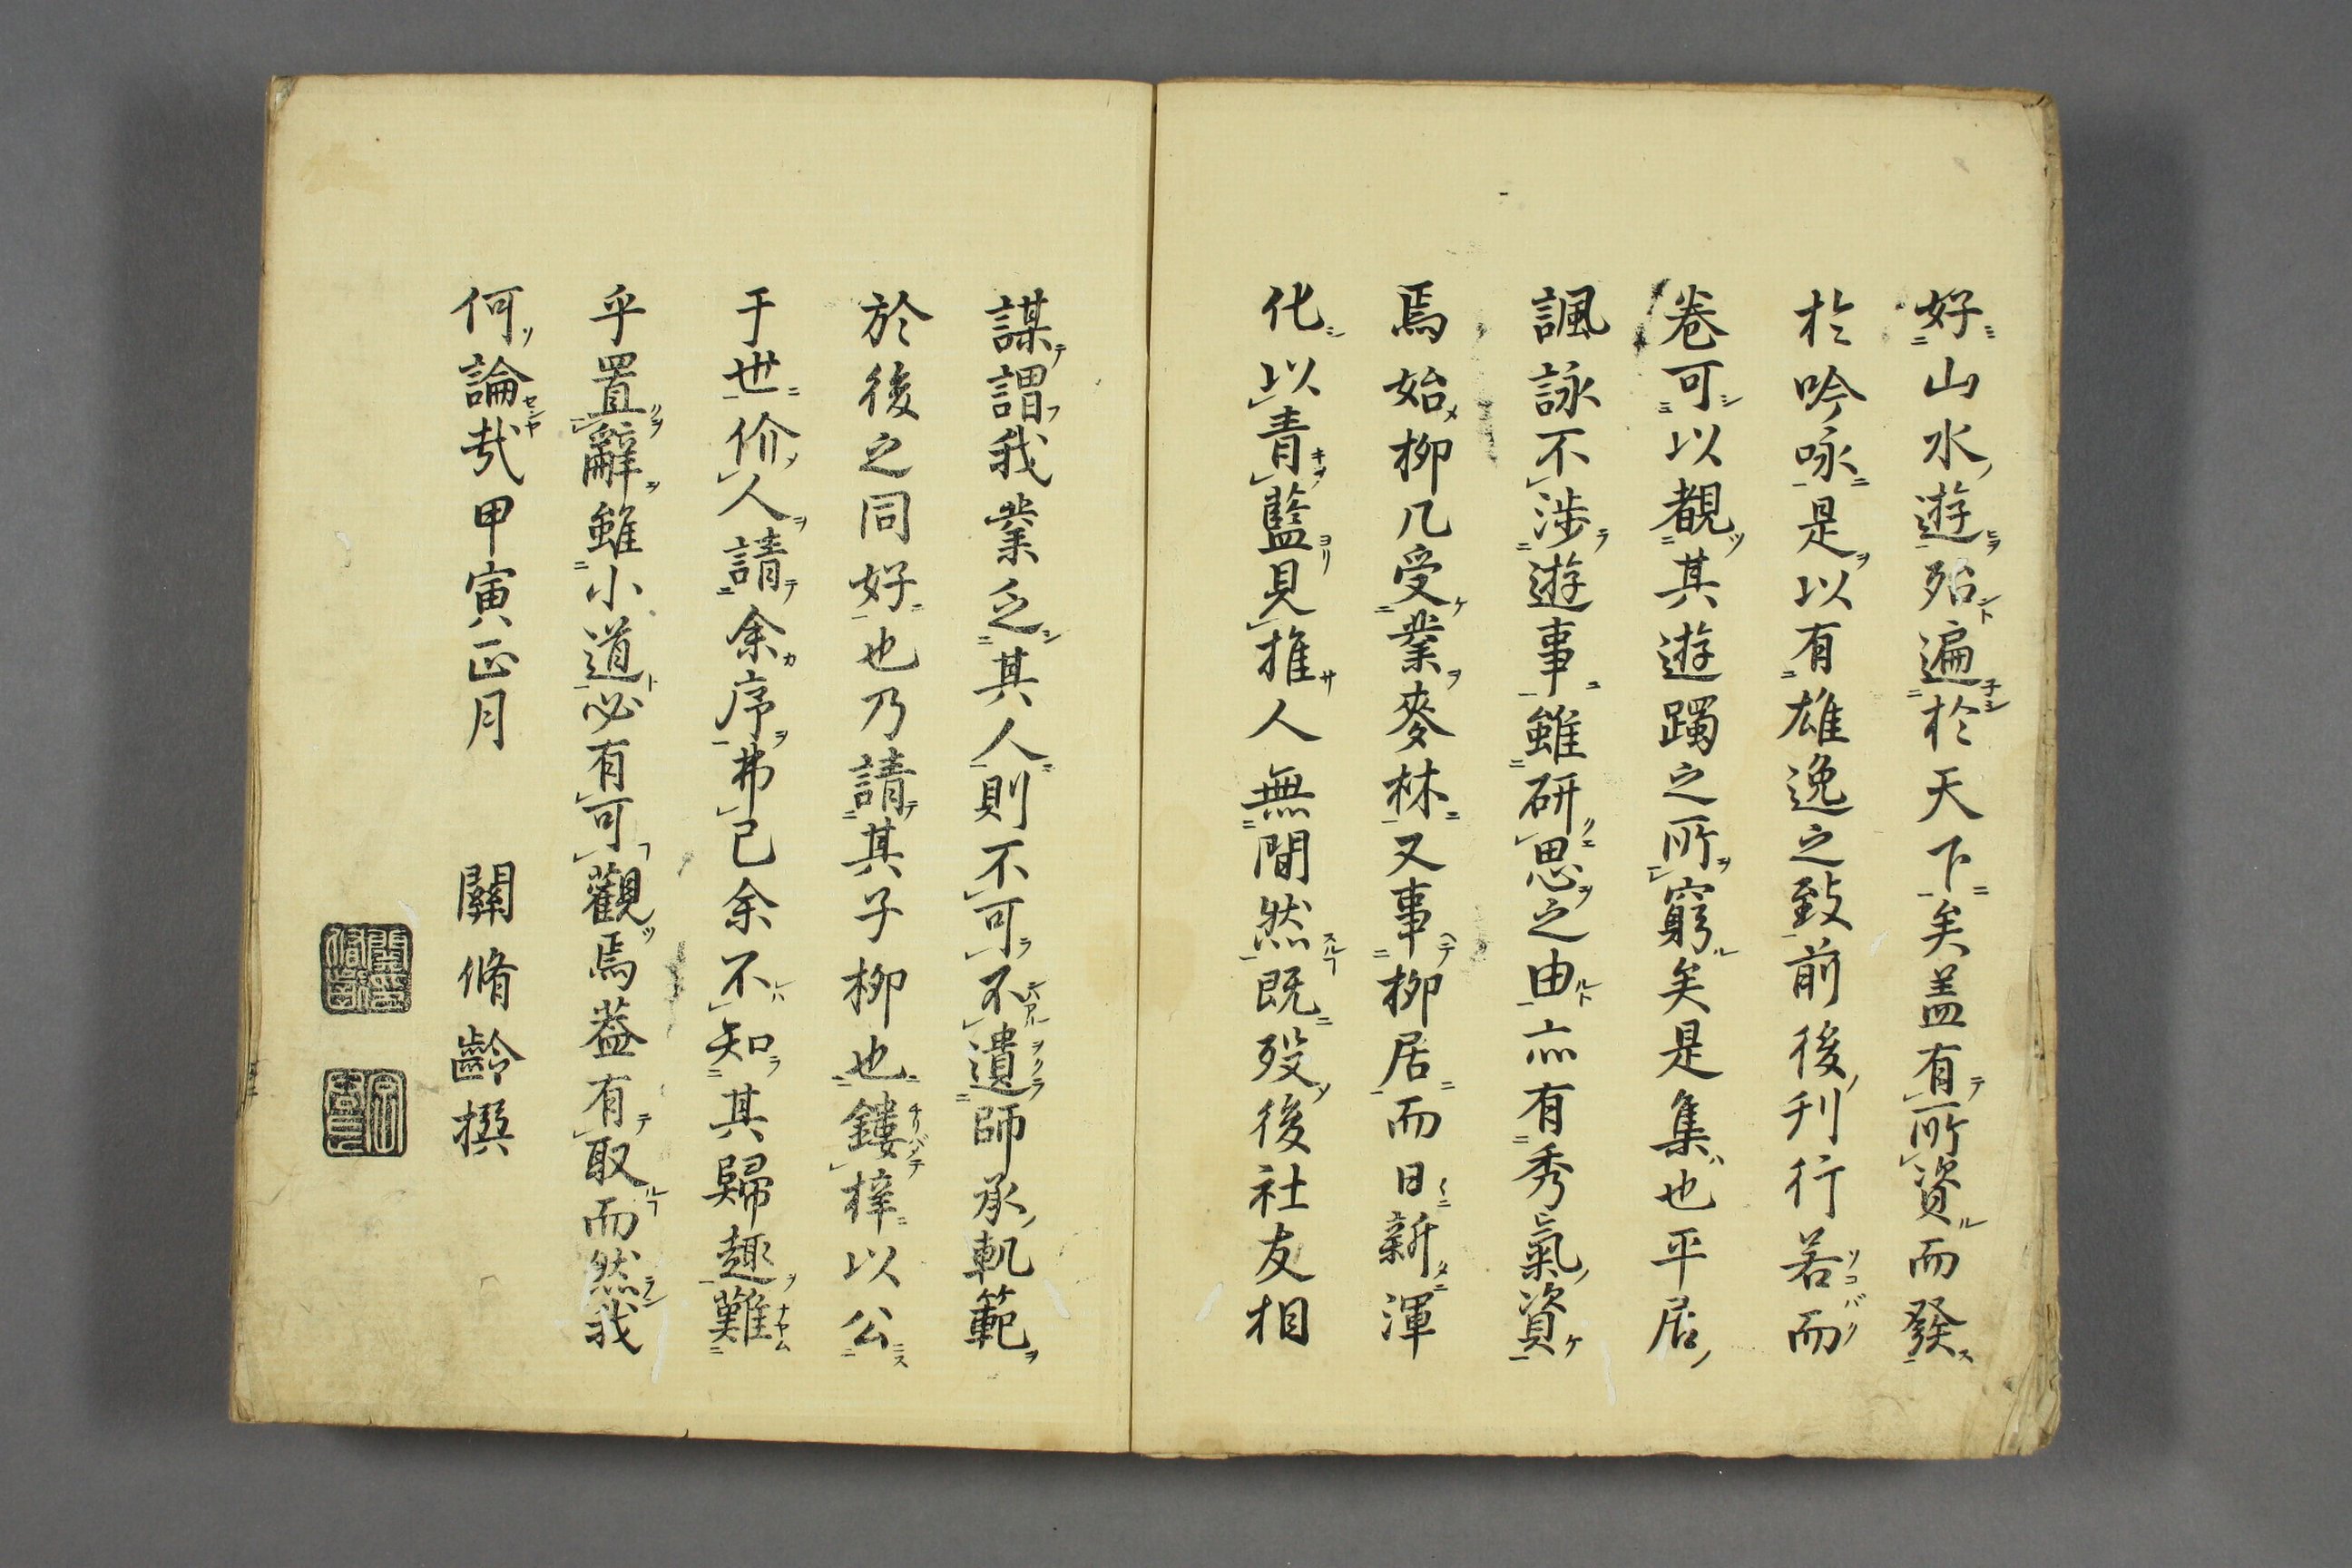 好山水遊殆遍於天下矣盖有所資而發
於吟咏是以有雄逸之致前後刋行若而
卷可以覩其遊躅之所窮矣是集也平居
諷詠不渉遊事雖研思之由亦有秀氣資
焉始柳几受業麥林又事柳居而日新渾
化以青藍見推人無間然既歿後社友相
謀謂我業乏其人則不可不遺師承軌範
於後之同好也乃請其子柳也鏤梓以公
于世价人請余序弗已余不知其歸趣難
乎置辭雖小道必有可觀焉葢有取而然我
何論哉甲寅正月 關脩齡撰